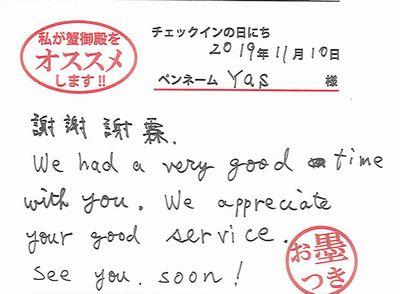 私が蟹御殿を
オススメ
します!!
チェックインの日にち
2019年11月10日
ペンネーム Yas 様
謝謝謝霖.
We had a very good time
with you. We appreciate
your good service.
See you soon!
お墨
つき